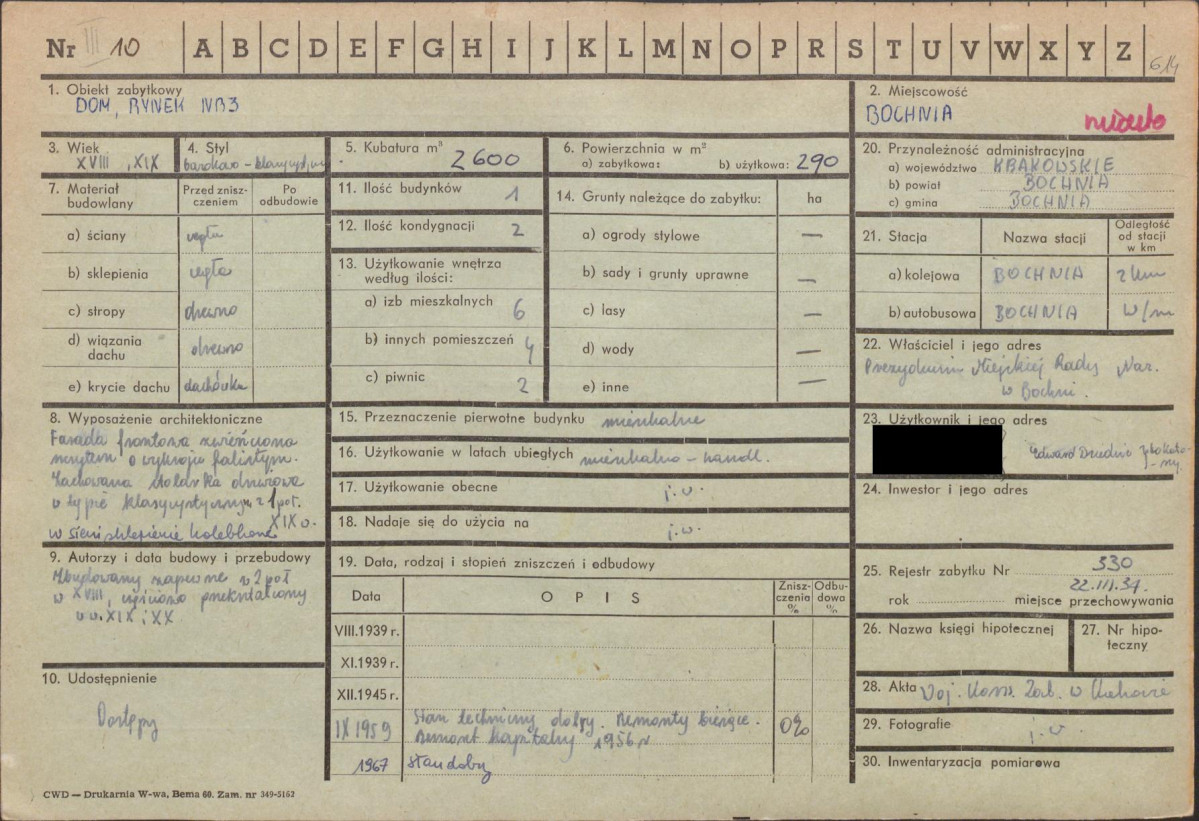 Nr III 10 A B C D E F G H I J K L M N O P R S T U V W X Y Z 614
1. Obiekt zabytkowy
DOM, RYNEK NR3
2. Miejscowość
BOCHNIA
miasto
3. Wiek
XVIII, XIX
4. Styl
barokowo - klasycyst.
5. Kubatura m³ 2600
6. Powierzchnia w m²
a) zabytkowa: b) użytkowa: 290
7. Materiał budowlany
Przed zniszczeniem
Po odbudowie
a) ściany cegła
b) sklepienia cegła
c) stropy drewno
d) wiązania dachu drewno
e) krycie dachu dachówka
8. Wyposażenie architektoniczne
Fasada frontowa zwieńczona
szczytem o wykroju falistym.
Zachowana stolarka drzwiowa
o typie klasycystycznym z 1 poł.
XIX w.
w sieni sklepienie kolebkowe
9. Autorzy i data budowy i przebudowy
Zbudowany zapewne w 2 poł
w XVIII, częściowo przekształcony
w w. XIX i XX
10. Udostępnienie
Dostępny
11. Ilość budynków 1
12. Ilość kondygnacji 2
13. Użytkowanie wnętrza
według ilości:
a) izb mieszkalnych 6
b) innych pomieszczeń 4
c) piwnic 2
14. Grunty należące do zabytku: ha
a) ogrody stylowe —
b) sady i grunty uprawne —
c) lasy —
d) wody —
e) inne —
15. Przeznaczenie pierwotne budynku mieszkalne
16. Użytkowanie w latach ubiegłych mieszkalno - handl.
17. Użytkowanie obecne j.w.
18. Nadaje się do użycia na j.w.
19. Data, rodzaj i stopień zniszczeń i odbudowy
Data OPIS Zniszczenia % Odbudowa %
VIII.1939 r.
XI.1939 r.
XII.1945 r.
IX 1959 Stan techniczny dobry. Remonty bieżące. 0%
Remont kapitalny 1956 r
1967 stan dobry
20. Przynależność administracyjna
a) województwo KRAKOWSKIE
b) powiat BOCHNIA
c) gmina BOCHNIA
21. Stacja
Nazwa stacji
Odległość od stacji w km
a) kolejowa BOCHNIA 2 km
b) autobusowa BOCHNIA w/m
22. Właściciel i jego adres
Prezydium Miejskiej Rady Nar.
w Bochni.
23. Użytkownik i jego adres
Edward
24. Inwestor i jego adres
25. Rejestr zabytku Nr 330
22.III.37.
rok miejsce przechowywania
26. Nazwa księgi hipotecznej
27. Nr hipoteczny
28. Akta Woj. Kons. Zab. w Krakowie
29. Fotografie j.w.
30. Inwentaryzacja pomiarowa
CWD — Drukarnia W-wa, Bema 60. Zam. nr 349-5162